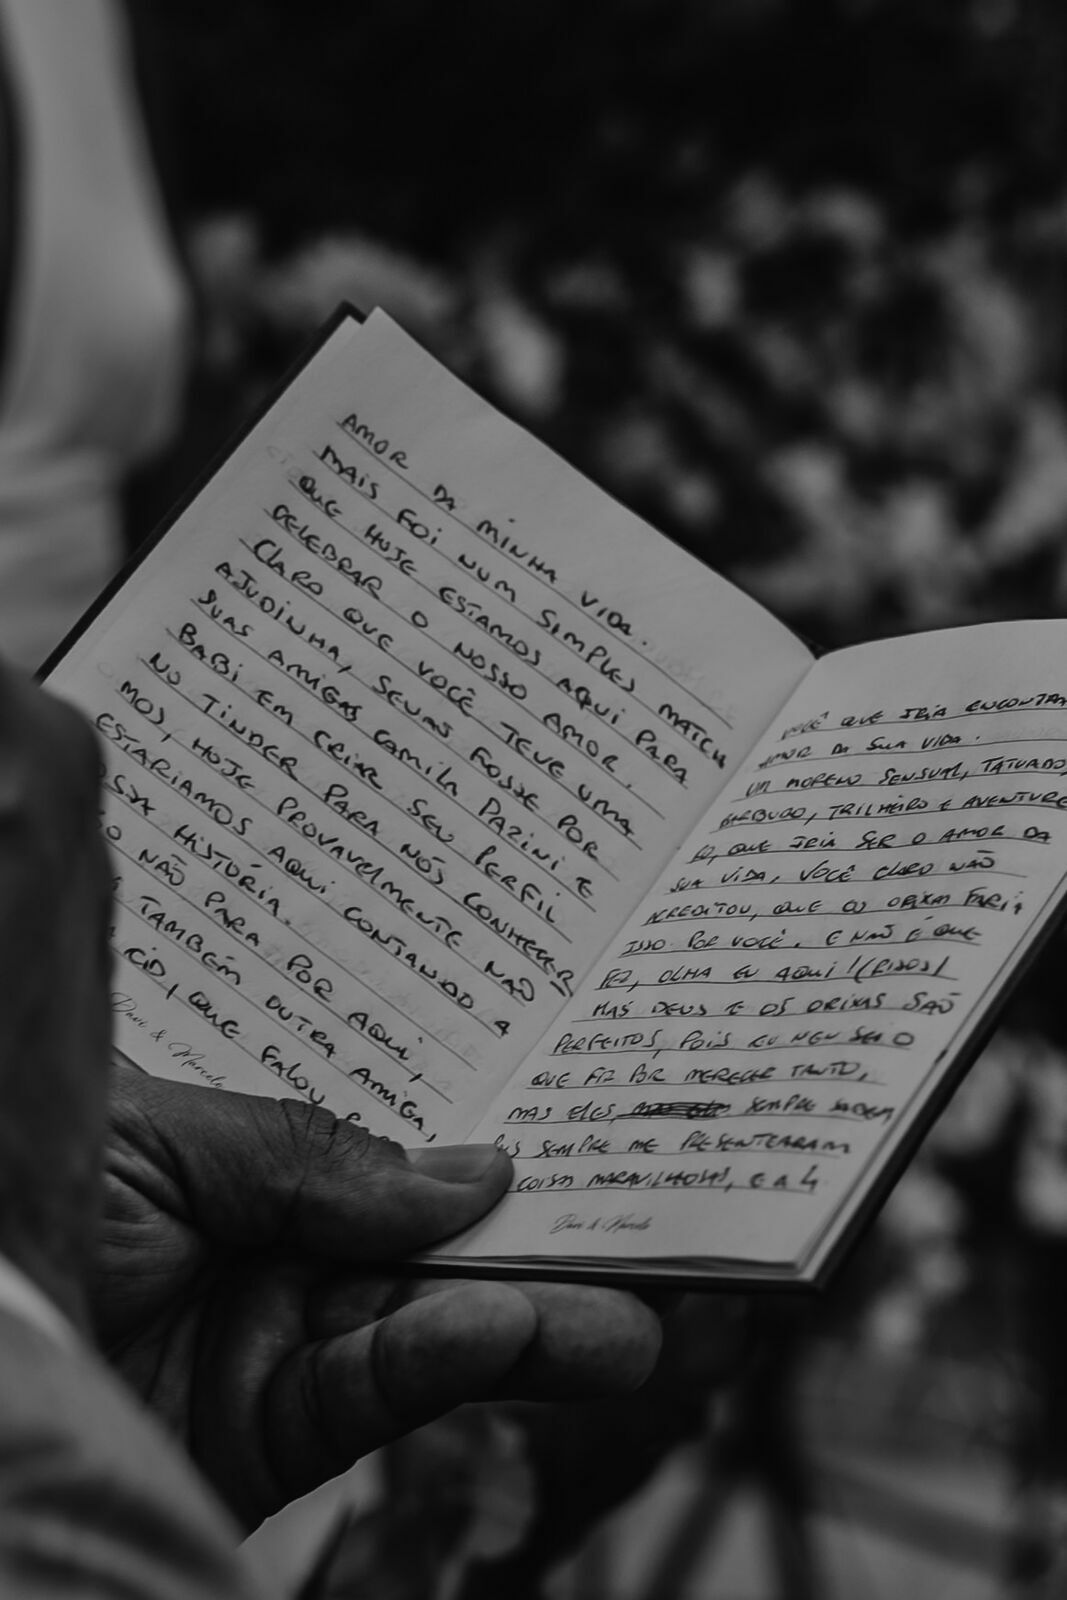 AMOR DA MINHA VIDA.
MAIS FOI NUM SIMPLES MATCH
QUE HOJE ESTAMOS AQUI PARA
CELEBRAR O NOSSO AMOR.
CLARO QUE VOCÊ TEVE UMA
AJUDINHA, SE NÃO FOSSE POR
SUAS AMIGAS CAMILA PAZINI E
BABI EM CRIAR SEU PERFIL
NO TINDER PARA NÓS CONHECER
MOS, HOJE PROVAVELMENTE NÃO
ESTARIAMOS AQUI CONTANDO A
HISTÓRIA.
NÃO PARA POR AQUI,
TAMBÉM OUTRA AMIGA,
CID, QUE FALOU
Davi & Marcelo
VOCÊ QUE IRIA ENCONTRA
AMOR DA SUA VIDA.
UM MORENO SENSUAL, TATUADO,
BARBUDO, TRILHEIRO E AVENTURE
RO, QUE IRIA SER O AMOR DA
SUA VIDA, VOCÊ CLARO NÃO
ACREDITOU, QUE OS ORIXAS FARIA
ISSO POR VOCÊ. E NÃO É QUE
FEZ, OLHA EU AQUI! (RISOS)
MAS DEUS E OS ORIXAS SÃO
PERFEITOS, POIS EU NEM SEI O
QUE FIZ POR MERECER TANTO,
MAS ELES, SEMPRE SABEM
POIS SEMPRE ME PRESENTEARAM
COISAS MARAVILHOSAS, E A 4
Davi & Marcelo